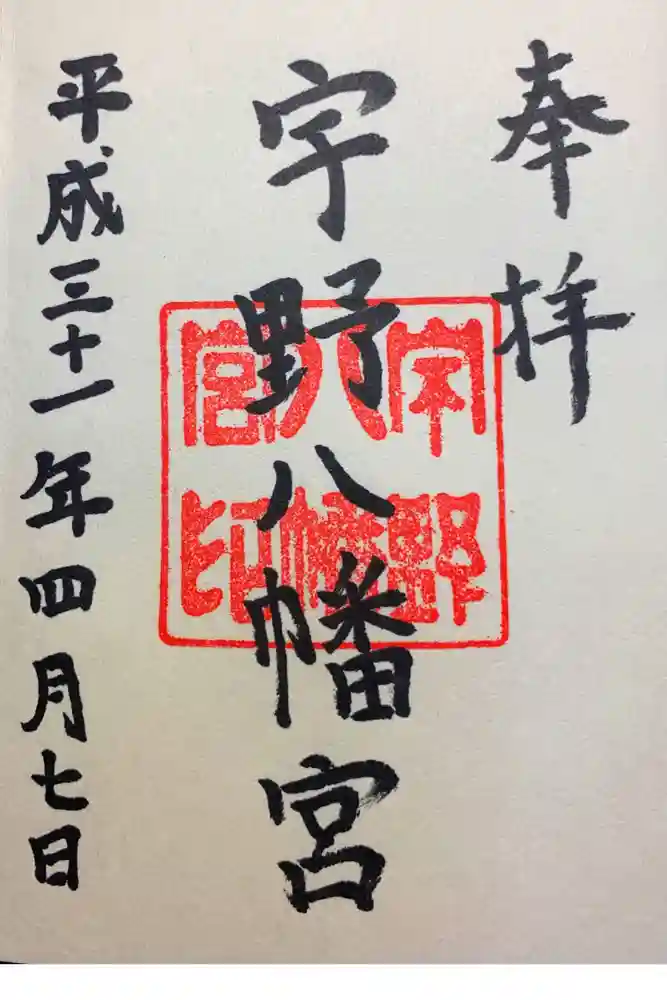 奉拝
宇野八幡宮
宇野
八幡
宮印
平成三十一年四月七日